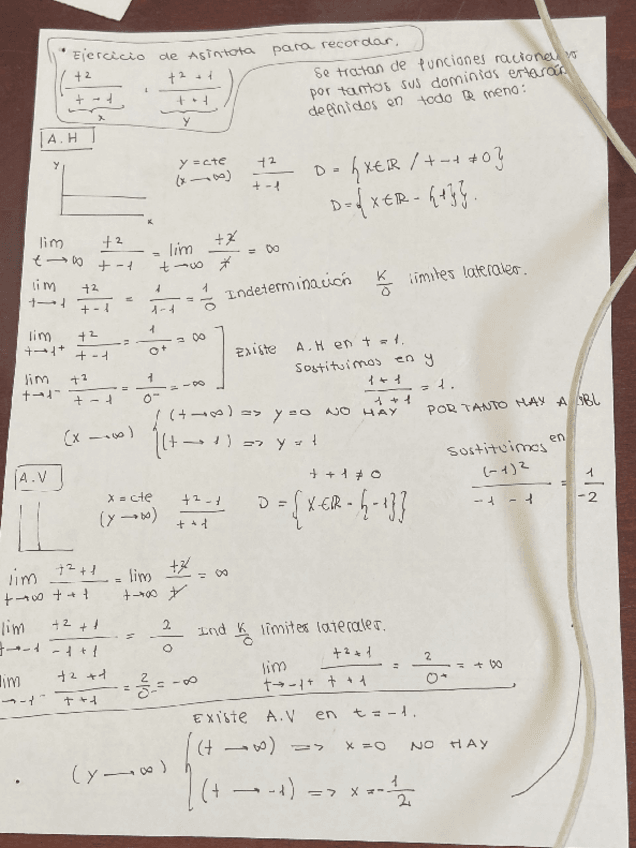 * Ejercicio de Asíntota para recordar.
( t2 / t-1 , t2+1 / t+1 )
x y
Se tratan de funciones racionales
por tantos sus dominios estarán
definidos en todo ℝ meno:
A.H
y x
y = cte
(x → ∞)
t2 / t-1
D = {x∈ℝ / t-1 ≠ 0}
D = {x∈ℝ - {1}}.
lim t→∞ t2 / t-1 = lim t→∞ t2 / t = ∞
lim t→1 t2 / t-1 = 1 / 1-1 = 1/0 Indeterminación K/0 límites laterales.
lim t→1+ t2 / t-1 = 1 / 0+ = ∞
lim t→1- t2 / t-1 = 1 / 0- = -∞
Existe A.H en t = 1.
sostituimos en y
1+1 / 1+1 = 1.
(x → ∞) { (t → ∞) => y = 0 NO HAY POR TANTO HAY A
(t → 1) => y = 1
sostituimos en
(-1)2 / -1-1 = 1 / -2
A.V
x = cte
(y → ∞)
t2-1 / t+1
t+1 ≠ 0
D = {x∈ℝ - {-1}}
lim t→∞ t2+1 / t+1 = lim t→∞ t2 / t = ∞
lim t→-1 t2+1 / -1+1 = 2 / 0 Ind K/0 límites laterales.
lim t→-1- t2+1 / t+1 = 2 / 0- = -∞
lim t→-1+ t2+1 / t+1 = 2 / 0+ = +∞
Existe A.V en t = -1.
(y → ∞) { (t → ∞) => x = 0 NO HAY
(t → -1) => x = -1/2